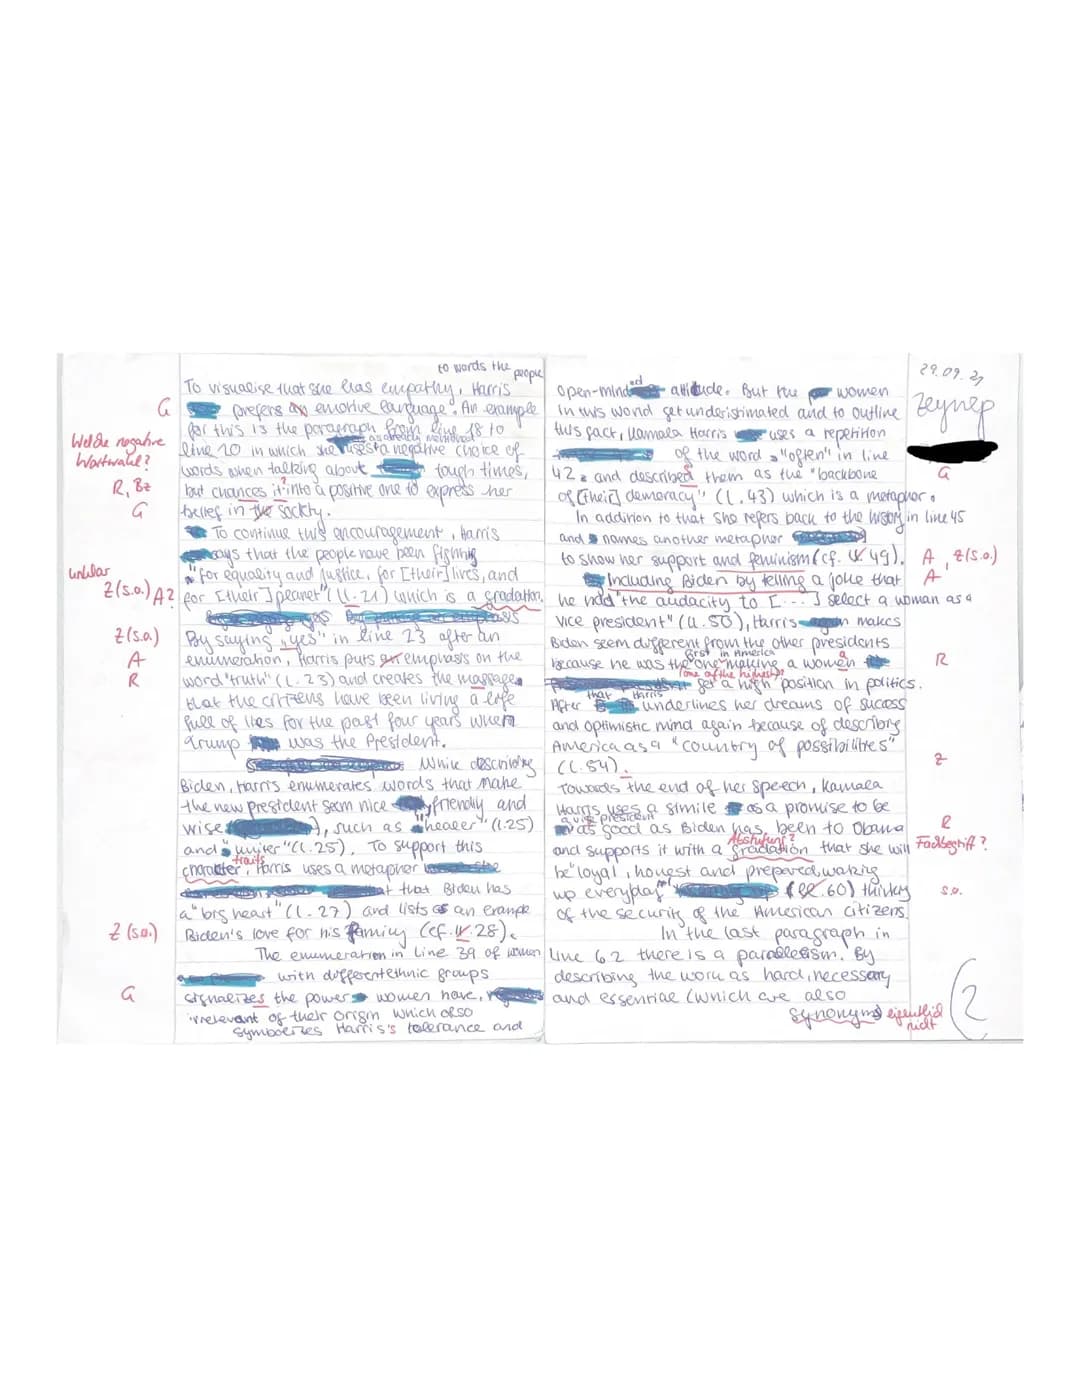 to words the people
To visualise that she has empathy, Harris
G
prefers an emotive language. An example
for this is the paragraph from line 18 to
Welche negative
Wortwahl?
as already mentioned
line 20 in which she uses a negative choice of
words when talking about tough times,
R, Bz
but chances it into a positive one to express her
G
belief in the sociky.
To continue this encouragement, Harris
says that the people have been fighting
unklar
"for equality and justice, for [their] lives, and
Z (s.o.) A?
for [their] planet" (l. 21) which is a gradation.
Z (s.o.)
By saying "yes" in line 23 after an
A
enumeration, Harris puts an emphasis on the
R
word "truth" (l. 23) and creates the massage
that the citizens have been living a life
full of lies for the past four years when
Trump was the President.
While describing
Biden, Harris enumerates words that make
the new president seem nice, friendly and
wise, such as "healer" (l. 25)
and "uniter" (l. 25). To support this
character traits, Harris uses a metapher
that Biden has
a "big heart" (l. 27) and lists as an example
Z (s.o.)
Biden's love for his family (cf. ll. 28).
The enumeration in line 39 of women
with different ethnic groups
G
signalizes the power women have,
irrelevant of their origin which also
symbolizes Harris's tolerance and
29.09.21
Zeynep
open-minded attidude. But the women
in this world get underistimated and to outline
this fact, Kamala Harris uses a repetition
of the word "often" in line
G
42 and described them as the "backbone
of [their] demoracy" (l. 43) which is a metapher.
In addition to that she refers back to the history in line 45
and names another metapher
A, Z (s.o.)
to show her support and feminism (cf. ll. 49).
A
Including Biden by telling a joke that
he had "the audacity to [...] select a woman as a
vice president" (ll. 50), Harris makes
Biden seem different from the other presidents
first in America
R
because he was the one making a women
(one of the highest)
get a high position in politics.
After that Harris underlines her dreams of success
and optimistic mind again because of describing
America as a "country of possibilities"
Z
(l. 54).
Towards the end of her speech, Kamala
Harris uses a simile as a promise to be
a vice president
R
as good as Biden has been to Obama
Abstufung?
Fachbegriff?
and supports it with a gradation that she will
be "loyal, honest and prepared, waking
s.o.
up everyday" (ll. 60) thinking
of the security of the American citizens.
In the last paragraph in
line 62 there is a parallelism. By
describing the work as hard, necessary
and essential (which are also
synonyms
eigentlich
nicht
2